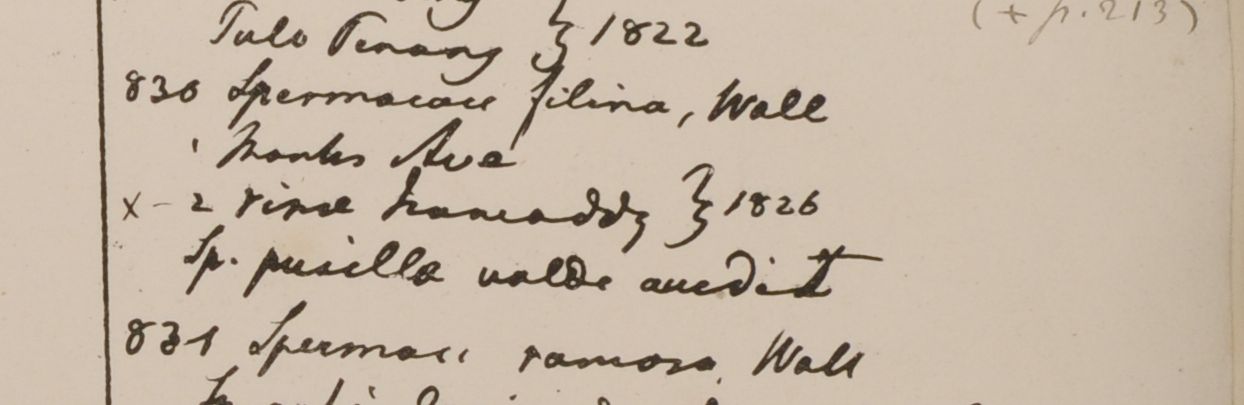 (+ p. 213)
Pulo Penang } 1822
830 Spermacoce filina, Wall
1 Montes Ava
x - 2 ripae } 1826
Sp. pusilla valde accedit
831 Spermac ramosa, Wall